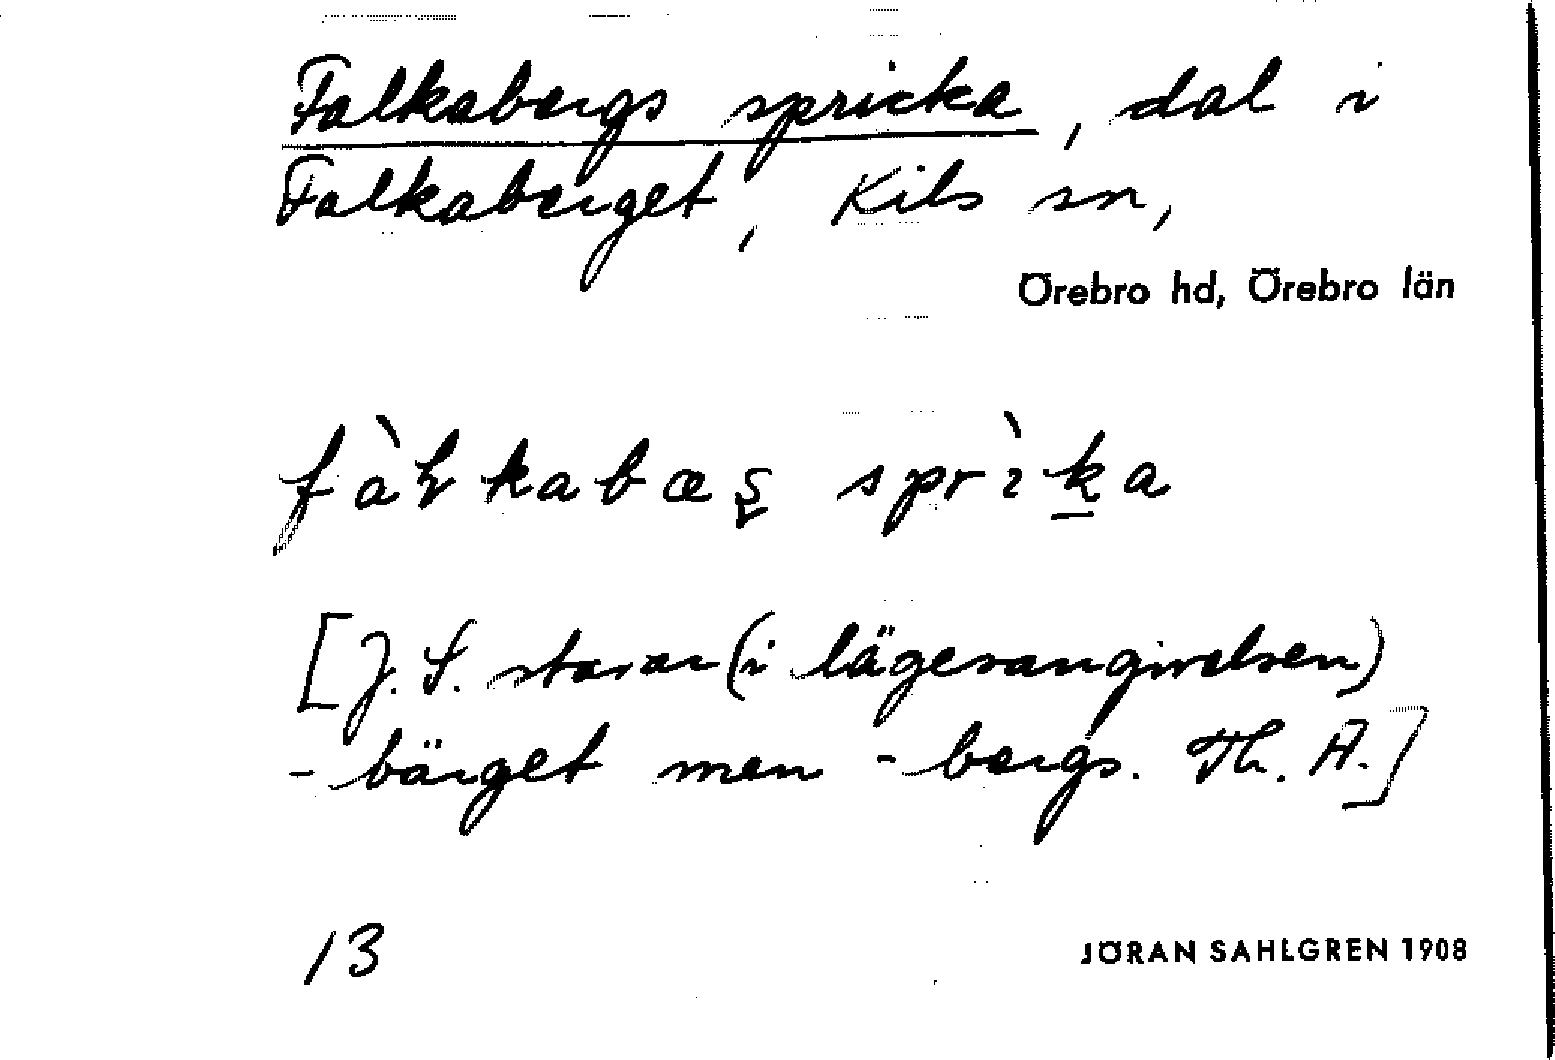 Falkabergs spricka, dal i
Falkaberget, Kils sn,
Örebro hd, Örebro län
[J. S. stavar (i lägesangivelsen)
-bärget men -bergs. Th. A.]
13
JÖRAN SAHLGREN 1908